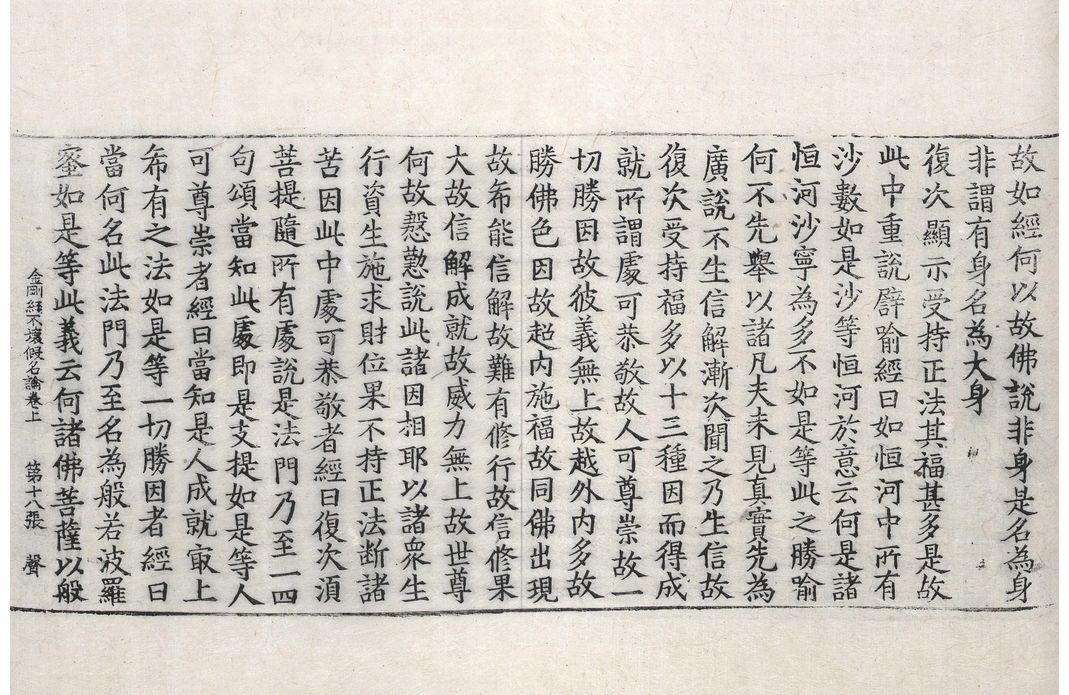 故如經何以故佛說非身是名為身
非謂有身名為大身
復次顯示受持正法其福甚多是故
此中重說譬喻經曰如恒河中所有
沙數如是沙等恒河於意云何是諸
恒河沙寧為多不如是等此之勝喻
何不先舉以諸凡夫未見真實先為
廣說不生信解漸次聞之乃生信故
復次受持福多以十三種因而得成
就所謂處可恭敬故人可尊崇故一
切勝因故彼義無上故越外內多故
勝佛色因故超內施福故同佛出現
故希能信解故難有修行故信修果
大故信解成就故威力無上故世尊
何故慇懃說此諸因相耶以諸衆生
行資生施求財位果不持正法斷諸
苦因此中處可恭敬者經曰復次湏
菩提隨所有處說是法門乃至一四
句頌當知此處即是支提如是等人
可尊崇者經曰當知是人成就㝡上
希有之法如是等一切勝因者經曰
當何名此法門乃至名為般若波羅
蜜如是等此義云何諸佛菩薩以般
金剛經不壞假名論卷上　第十八張　聲